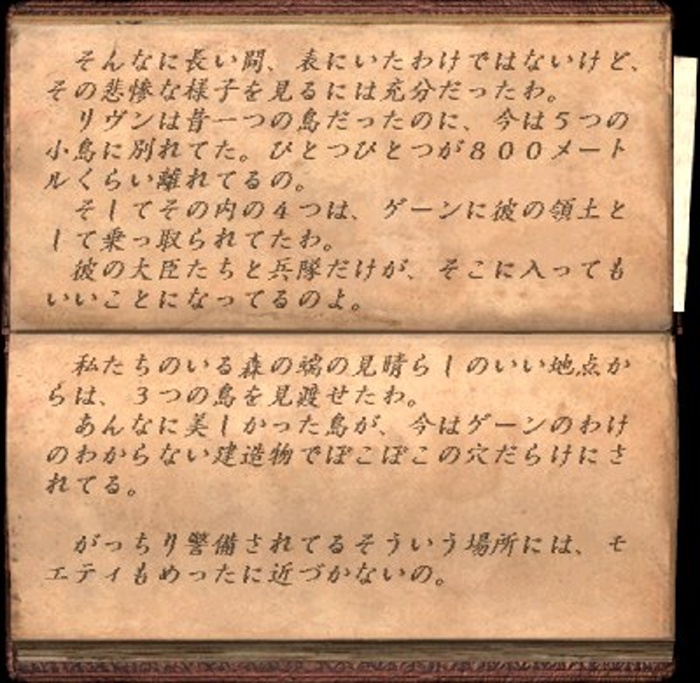 そんなに長い間、表にいたわけではないけど、
その悲惨な様子を見るには充分だったわ。
リヴンは昔一つの島だったのに、今は５つの
小島に別れてた。ひとつひとつが８００メート
ルくらい離れてるの。
そしてその内の４つは、ゲーンに彼の領土と
して乗っ取られてたわ。
彼の大臣たちと兵隊だけが、そこに入っても
いいことになってるのよ。
私たちのいる森の端の見晴らしのいい地点か
らは、３つの島を見渡せたわ。
あんなに美しかった島が、今はゲーンのわけ
のわからない建造物でぼこぼこの穴だらけにさ
れてる。
がっちり警備されてるそういう場所には、モ
エティもめったに近づかないの。